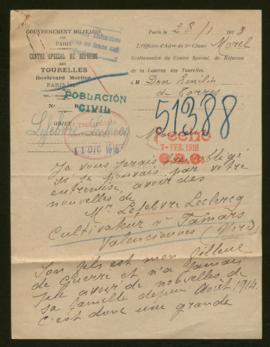 GOUVERNEMENT MILITAIRE
DE PARIS
CENTRE SPÉCIAL DE RÉFORME
DES
TOURELLES
Boulevard Mortier
PARIS
POBLACIÓN
CIVIL
OBJET :
Lefebvre Leclercq
11 DIC 19
Paris, le 28/1 1918
L'Officier d'Adm de 1re Classe Morel
Gestionnaire du Centre Spécial de Réforme
de la Caserne des Tourelles.
à M Don Emilio
de Torres
51388
7- FEB. 1918
Je vous serais
si je pouvais par votre
entremise, avoir des
nouvelles de
Mr Lefebvre Leclercq
Cultivateur à Famars
Valenciennes (Nord)
Son fils est mon filleul
de Guerre et n'a jamais
pu avoir de nouvelles de
sa famille depuis Août 1914.
C'est donc une grande